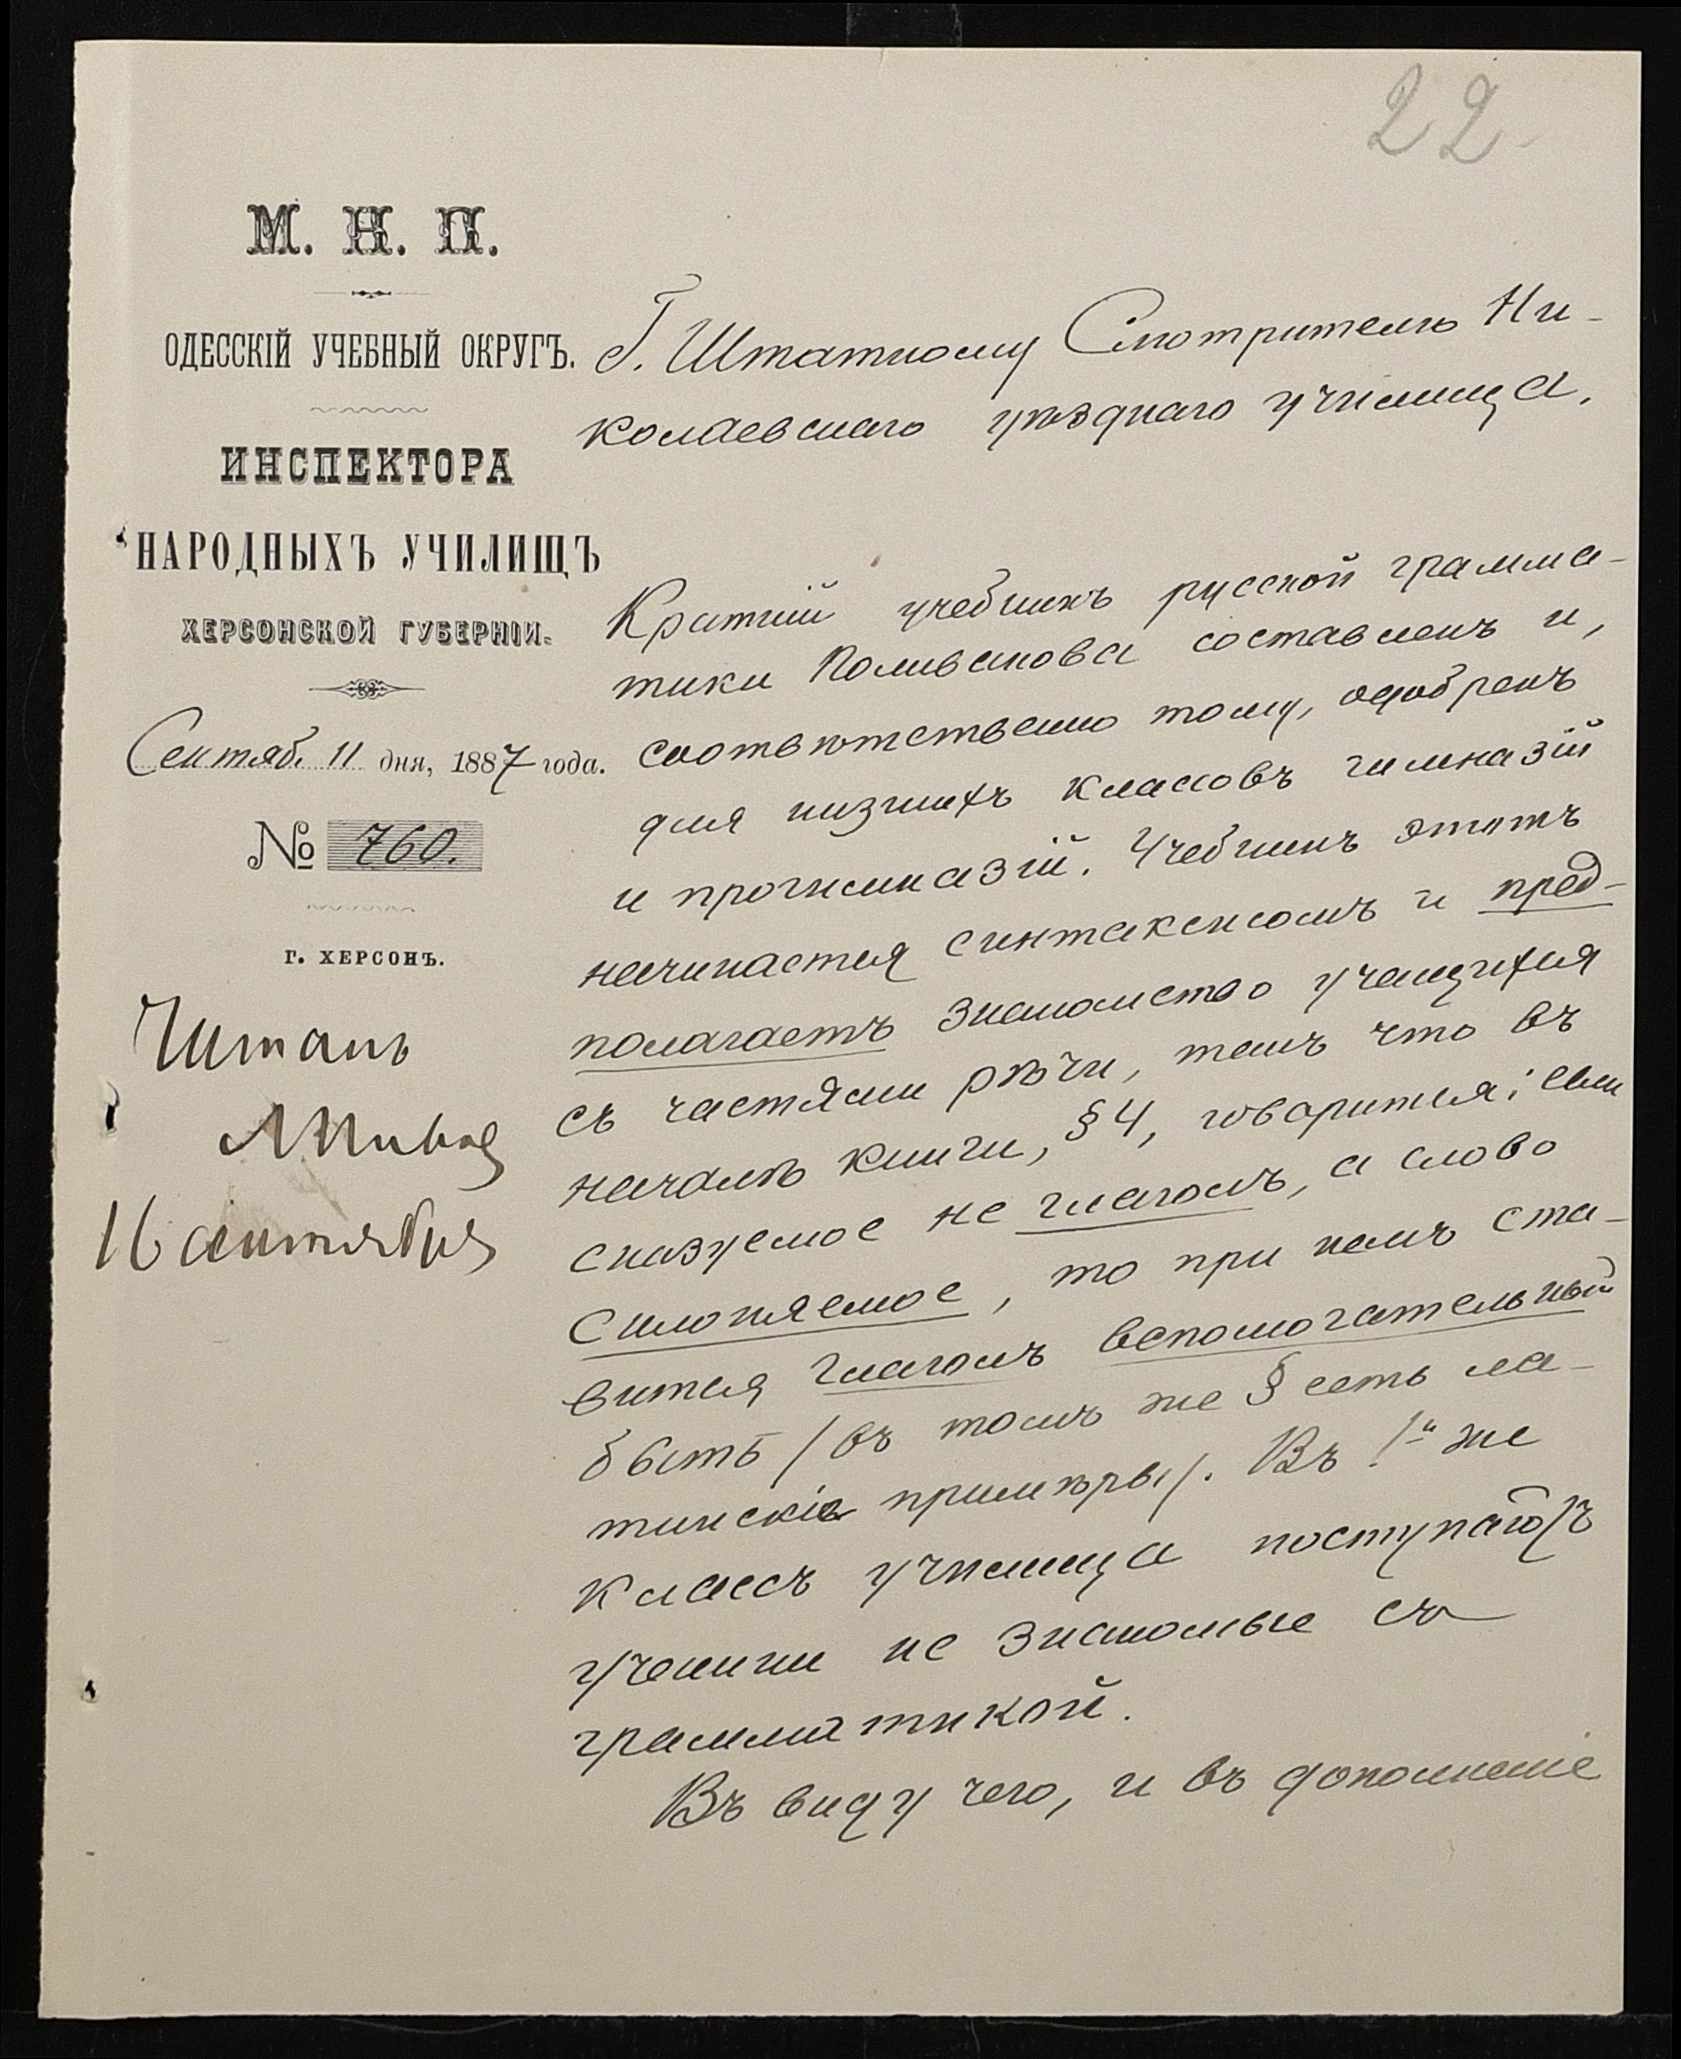 22
М. Н. П.
ОДЕССКІЙ УЧЕБНЫЙ ОКРУГЪ.
ИНСПЕКТОРА
НАРОДНЫХЪ УЧИЛИЩЪ
ХЕРСОНСКОЙ ГУБЕРНІИ.
Сентяб. 11 дня, 1887 года.
№ 760.
Г. ХЕРСОНЪ.
Читалъ
16 сентября
Г. Штатному Смотрителю Ни-
колаевскаго уѣзднаго училища.
Краткій учебникъ русской грамма-
тики Поливанова составленъ и,
соотвѣтственно тому, одобренъ
для низшихъ классовъ гимназій
и прогимназій. Учебникъ этотъ
начинается синтаксисомъ и пред-
полагаетъ знакомство учащихся
съ частями рѣчи, такъ что въ
началѣ книги, § 4, говорится: если
сказуемое не глаголъ, а слово
склоняемое, то при немъ ста-
вится глаголъ вспомогательный
быть /въ томъ же § есть ла-
тинскіе примѣры/. Въ 1й же
классъ училища поступаютъ
ученики не знакомые съ
грамматикой.
Въ виду чего, и въ дополненіе